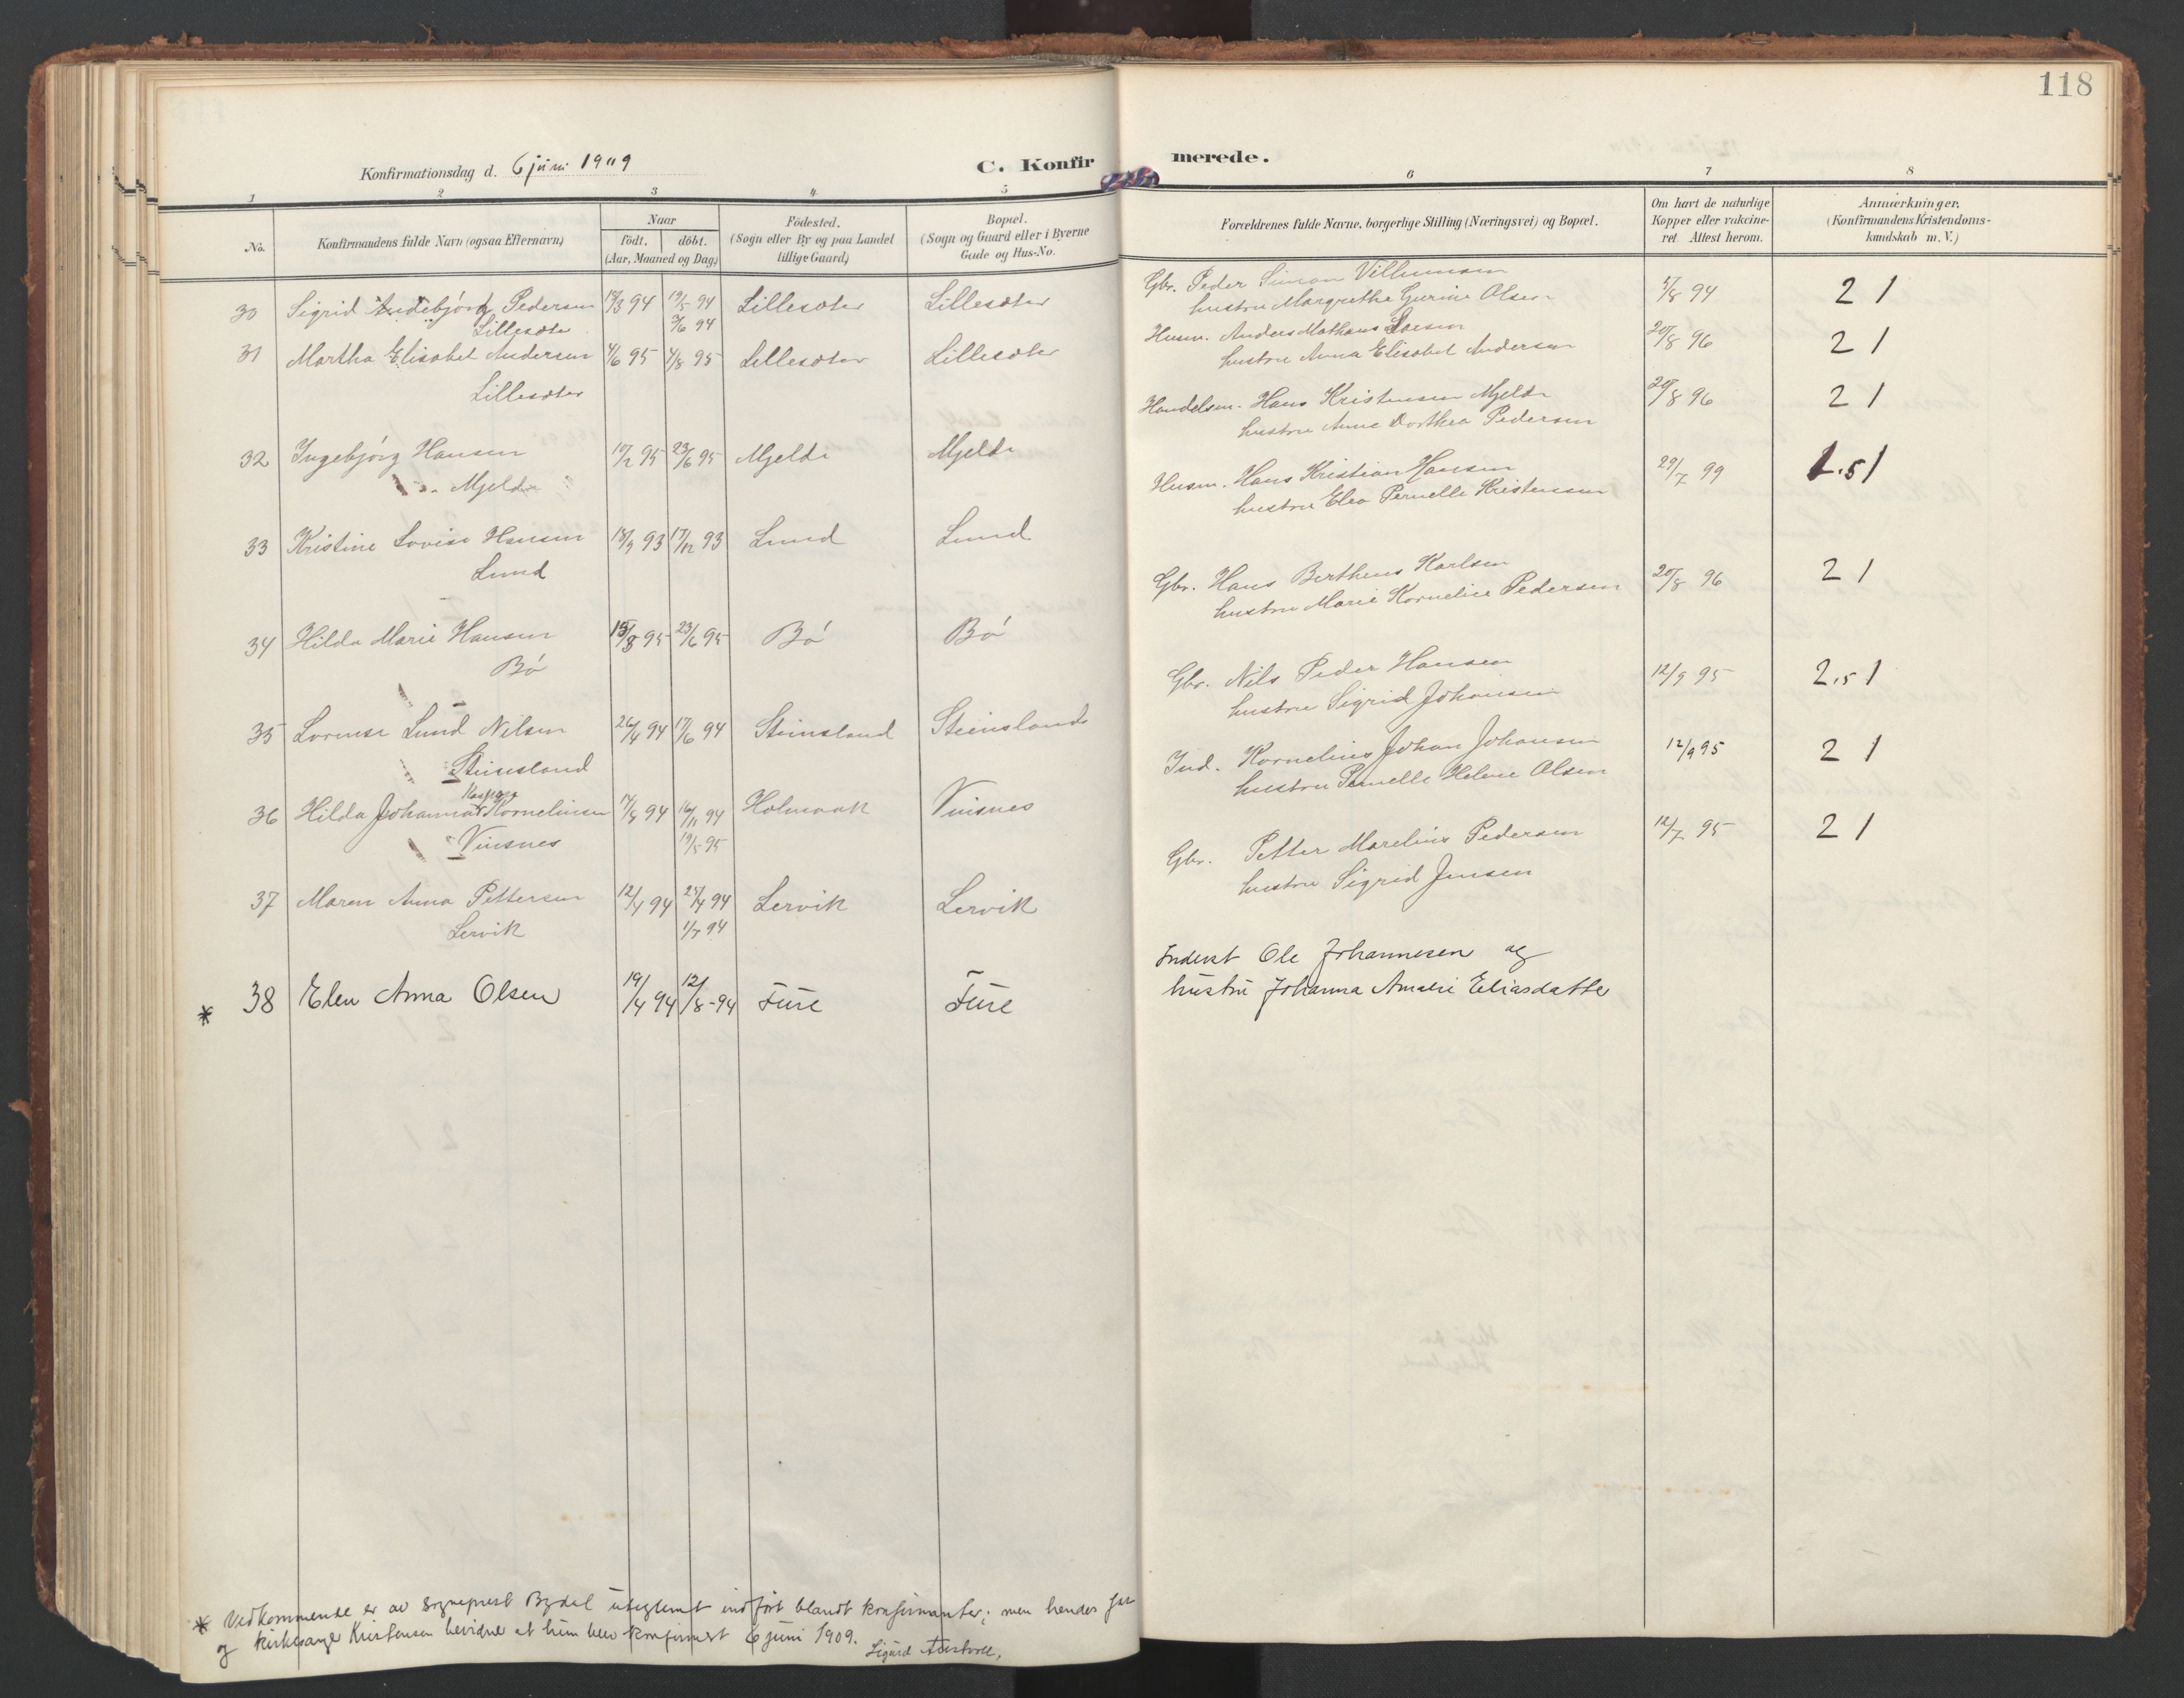 118
Konfirmationsdag d. 6 juni 1909
C. Konfirmerede.
1 2 3 4 5 6 7 8
No. Konfirmandens fulde Navn (ogsaa Efternavn) Naar födt. döbt. (Aar, Maaned og Dag) Födested. (Sogn eller By og paa Landet tillige Gaard) Bopæl. (Sogn og Gaard eller i Byerne Gade og Hus-No. Forældrenes fulde Navne, borgerlige Stilling (Næringsvei) og Bopæl. Om havt de naturlige Kopper eller vakcineret. Attest herom. Anmærkninger. (Konfirmandens Kristendomskundskab m. V.)
30 Sigrid Pedersen 94 19/5 94 Lillesæter Lillesæter Gbr. Peder Simon Villumsen 94 2 1
Lillesæter 94 hustru Margrethe Gurine Olsen
31 Martha Elisabet Andersen 4/6 95 4/8 95 Lillesæter Lillesæter Husm. Anders Mathæus 20/8 96 2 1
Lillesæter hustru Anna Elisabet Andersen
32 Ingebjørg Hansen 95 23/6 95 Mjelde Mjelde Handelsm. Hans Kristensen Mjelde 20/8 96 2 1
Mjelde hustru Anne Dorthea Pedersen
33 Kristine Lovise Hansen 18/9 93 17/12 93 Lund Lund Husm. Hans Kristian Hansen 29/7 99 .5 1
Lund hustru Elea Pernelle Kristensen
34 Hilda Marie Hansen 95 23/6 95 Bö Bö Gbr. Hans Bertheus Karlsen 20/8 96 2 1
Bö hustru Marie Kornelie Pedersen
35 Lorense Lund Nilsen 26/4 94 17/6 94 Steinsland Steinsland Gbr. Nils Peder Hansen 12/9 95 2.5 1
Steinsland hustru Sigrid Johansen
Kaspara
36 Hilda Johanna Kornelinsen 94 16/11 94 Holmvak Vinsnes Ind. Kornelius Johan Johansen 12/9 95 2 1
Vinsnes 19/5 95 hustru Pernelle Helene Olsen
37 Maren Anna Pettersen 12/4 94 94 Lervik Lervik Gbr. Petter Marelius Pedersen 12/7 95 2 1
Lervik 1/7 94 hustru Sigrid Jensen
* 38 Elen Anna Olsen 19/4 94 12/8-94 Fure Fure Inderst Ole Johannesen og
hustru Johanna Amalie Eliasdatter
* Vedkommende er av sogneprest Bydal uteglemt indført blandt konfirmanter; men hendes far
og kirkesanger Kristensen bevidner at hun blev konfirmert 6 juni 1909. Sigurd